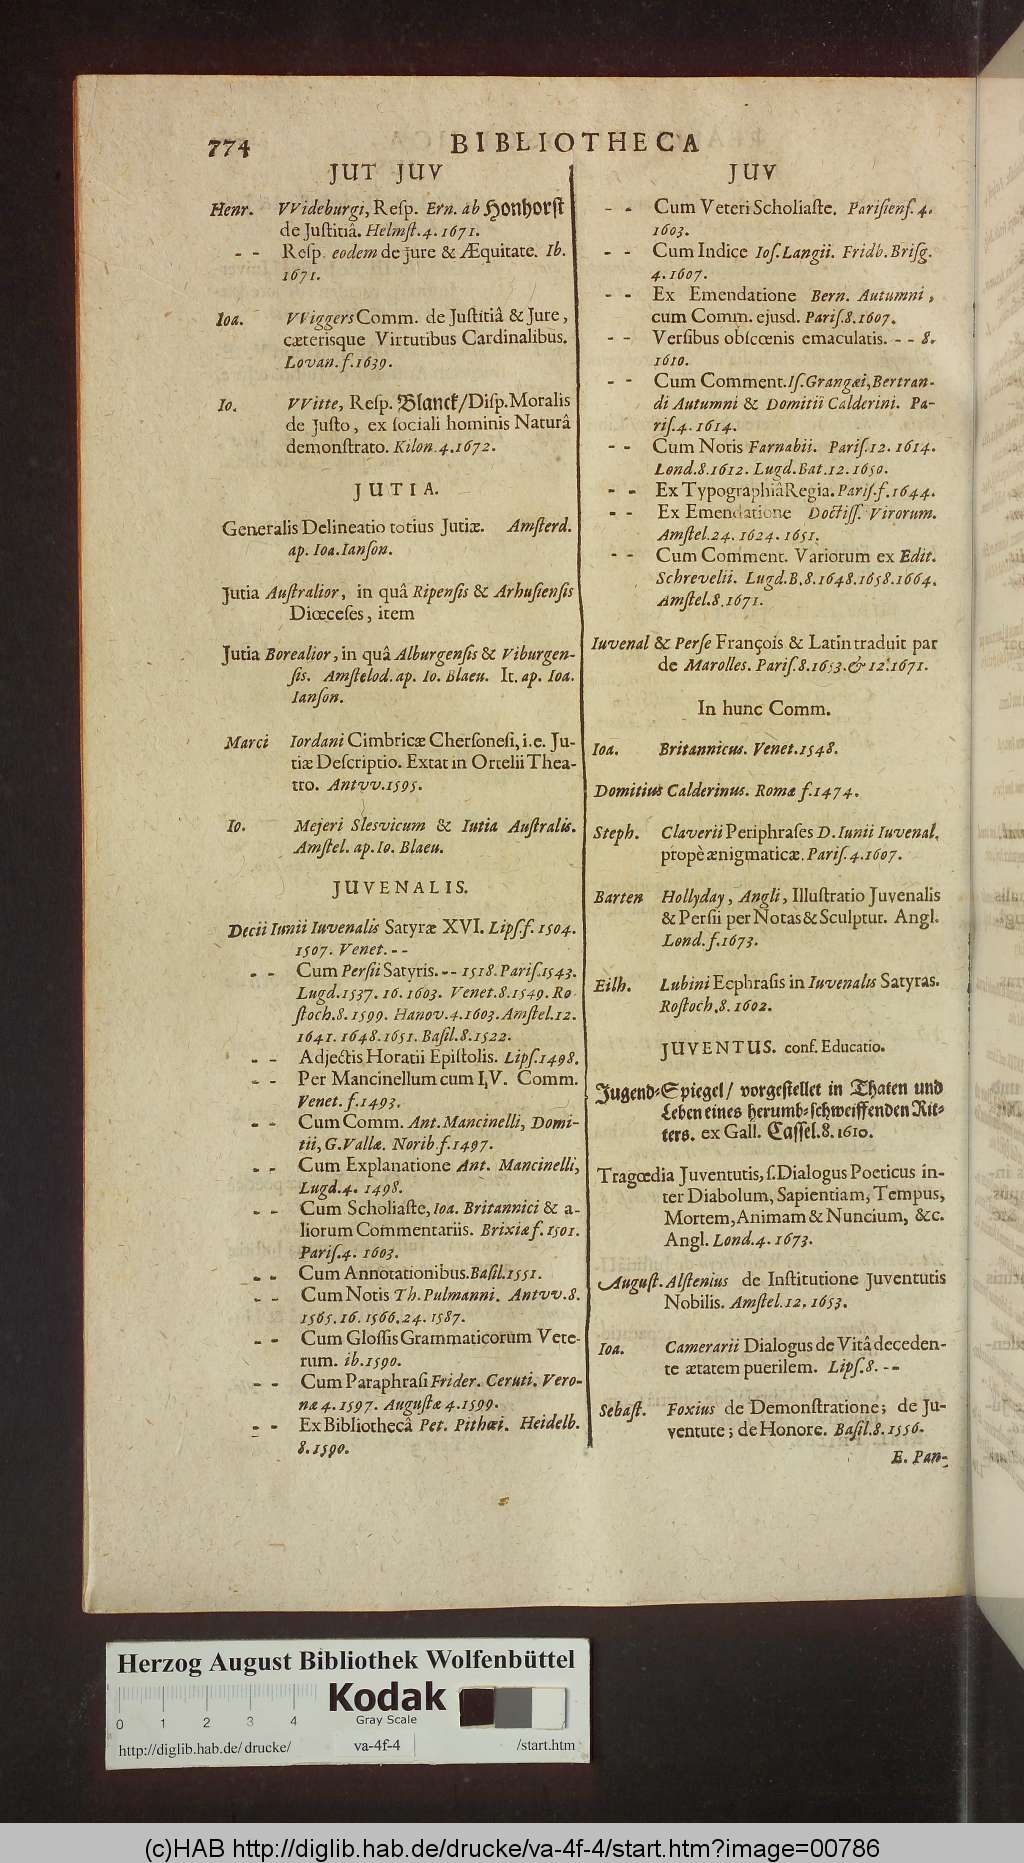 774
BIBLIOTHECA
JUT JUV
Henr. VVideburgi, Reſp. Ern. ab Honhorſt
de Juſtitiâ. Helmſt. 4. 1671.
- - Reſp. eodem de jure & Æquitate. Ib.
1671.
Ioa. VViggers Comm. de Juſtitiâ & Jure,
cæterisque Virtutibus Cardinalibus.
Lovan. f. 1639.
Io. VVitte, Reſp. Blanck/ Diſp. Moralis
de Juſto, ex ſociali hominis Naturâ
demonſtrato. Kilon. 4. 1672.
JUTIA.
Generalis Delineatio totius Jutiæ. Amſterd.
ap. Ioa. Ianſon.
Jutia Auſtralior, in quâ Ripenſis & Arhuſienſis
Diœceſes, item
Jutia Borealior, in quâ Alburgenſis & Viburgen-
ſis. Amſtelod. ap. Io. Blaeu. It. ap. Ioa.
Ianſon.
Marci Iordani Cimbricæ Cherſoneſi, i.e. Ju-
tiæ Deſcriptio. Extat in Ortelii Thea-
tro. Antvv. 1595.
Io. Mejeri Slesvicum & Iutia Auſtralis.
Amſtel. ap. Io. Blaeu.
JUVENALIS.
Decii Iunii Iuvenalis Satyræ XVI. Lipſ. f. 1504.
1507. Venet. - -
- - Cum Perſii Satyris. - - 1518. Pariſ. 1543.
Lugd. 1537. 16. 1603. Venet. 8. 1549. Ro-
ſtoch. 8. 1599. Hanov. 4. 1603. Amſtel. 12.
1641. 1648. 1651. Baſil. 8. 1522.
- - Adjectis Horatii Epiſtolis. Lipſ. 1498.
- - Per Mancinellum cum I,V. Comm.
Venet. f. 1493.
- - Cum Comm. Ant. Mancinelli, Domi-
tii, G. Vallæ. Norib. f. 1497.
- - Cum Explanatione Ant. Mancinelli,
Lugd. 4. 1498.
- - Cum Scholiaſte, Ioa. Britannici & a-
liorum Commentariis. Brixiæ f. 1501.
Pariſ. 4. 1603.
- - Cum Annotationibus. Baſil. 1551.
- - Cum Notis Th. Pulmanni. Antvv. 8.
1565. 16. 1566. 24. 1587.
- - Cum Gloſſis Grammaticorum Vete-
rum. ib. 1590.
- - Cum Paraphraſi Frider. Ceruti. Vero-
næ 4. 1597. Auguſtæ 4. 1599.
- - Ex Bibliothecâ Pet. Pithœi. Heidelb.
8. 1590.
JUV
- - Cum Veteri Scholiaſte. Pariſienſ. 4.
1603.
- - Cum Indice Ioſ. Langii. Fridb. Briſg.
4. 1607.
- - Ex Emendatione Bern. Autumni,
cum Comm. ejusd. Pariſ. 8. 1607.
- - Verſibus obſcœnis emaculatis. - - 8.
1610.
- - Cum Comment. Iſ. Grangæi, Bertran-
di Autumni & Domitii Calderini. Pa-
riſ. 4. 1614.
- - Cum Notis Farnabii. Pariſ. 12. 1614.
Lond. 8. 1612. Lugd. Bat. 12. 1650.
- - Ex Typographiâ Regia. Pariſ. f. 1644.
- - Ex Emendatione Doctiſſ. Virorum.
Amſtel. 24. 1624. 1651.
- - Cum Comment. Variorum ex Edit.
Schrevelii. Lugd. B. 8. 1648. 1658. 1664.
Amſtel. 8. 1671.
Iuvenal & Perſe François & Latin traduit par
de Marolles. Pariſ. 8. 1653. & 12. 1671.
In hunc Comm.
Ioa. Britannicus. Venet. 1548.
Domitius Calderinus. Romæ f. 1474.
Steph. Claverii Periphraſes D. Iunii Iuvenal.
propè ænigmaticæ. Pariſ. 4. 1607.
Barten Hollyday, Angli, Illuſtratio Juvenalis
& Perſii per Notas & Sculptur. Angl.
Lond. f. 1673.
Eilh. Lubini Ecphraſis in Iuvenalis Satyras.
Roſtoch. 8. 1602.
JUVENTUS. conf. Educatio.
Jugend-Spiegel/ vorgeſtellet in Thaten und
Leben eines herumb-ſchweiffenden Rit-
ters. ex Gall. Caſſel. 8. 1610.
Tragœdia Juventutis, ſ. Dialogus Poeticus in-
ter Diabolum, Sapientiam, Tempus,
Mortem, Animam & Nuncium, &c.
Angl. Lond. 4. 1673.
Auguſt. Alſtenius de Inſtitutione Juventutis
Nobilis. Amſtel. 12. 1653.
Ioa. Camerarii Dialogus de Vitâ deceden-
te ætatem puerilem. Lipſ. 8. - -
Sebaſt. Foxius de Demonſtratione; de Ju-
ventute; de Honore. Baſil. 8. 1556.
E. Pan-
Herzog August Bibliothek Wolfenbüttel
Kodak
Gray Scale
0 1 2 3 4
http://diglib.hab.de/drucke/ va-4f-4 /start.htm
(c)HAB http://diglib.hab.de/drucke/va-4f-4/start.htm?image=00786